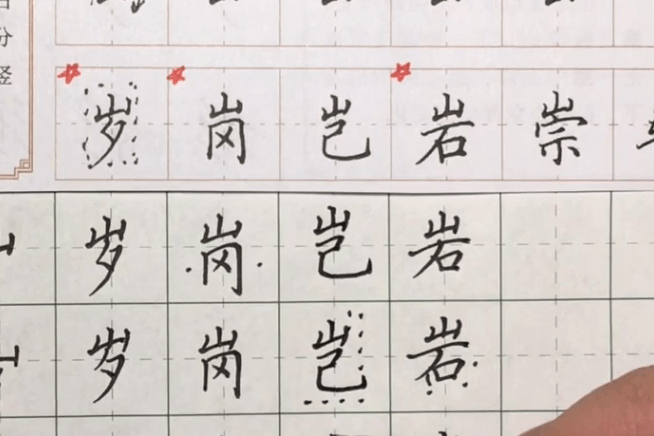 分
竖
岁岗岂岩崇
岁岗岂岩
岁岗岂岩